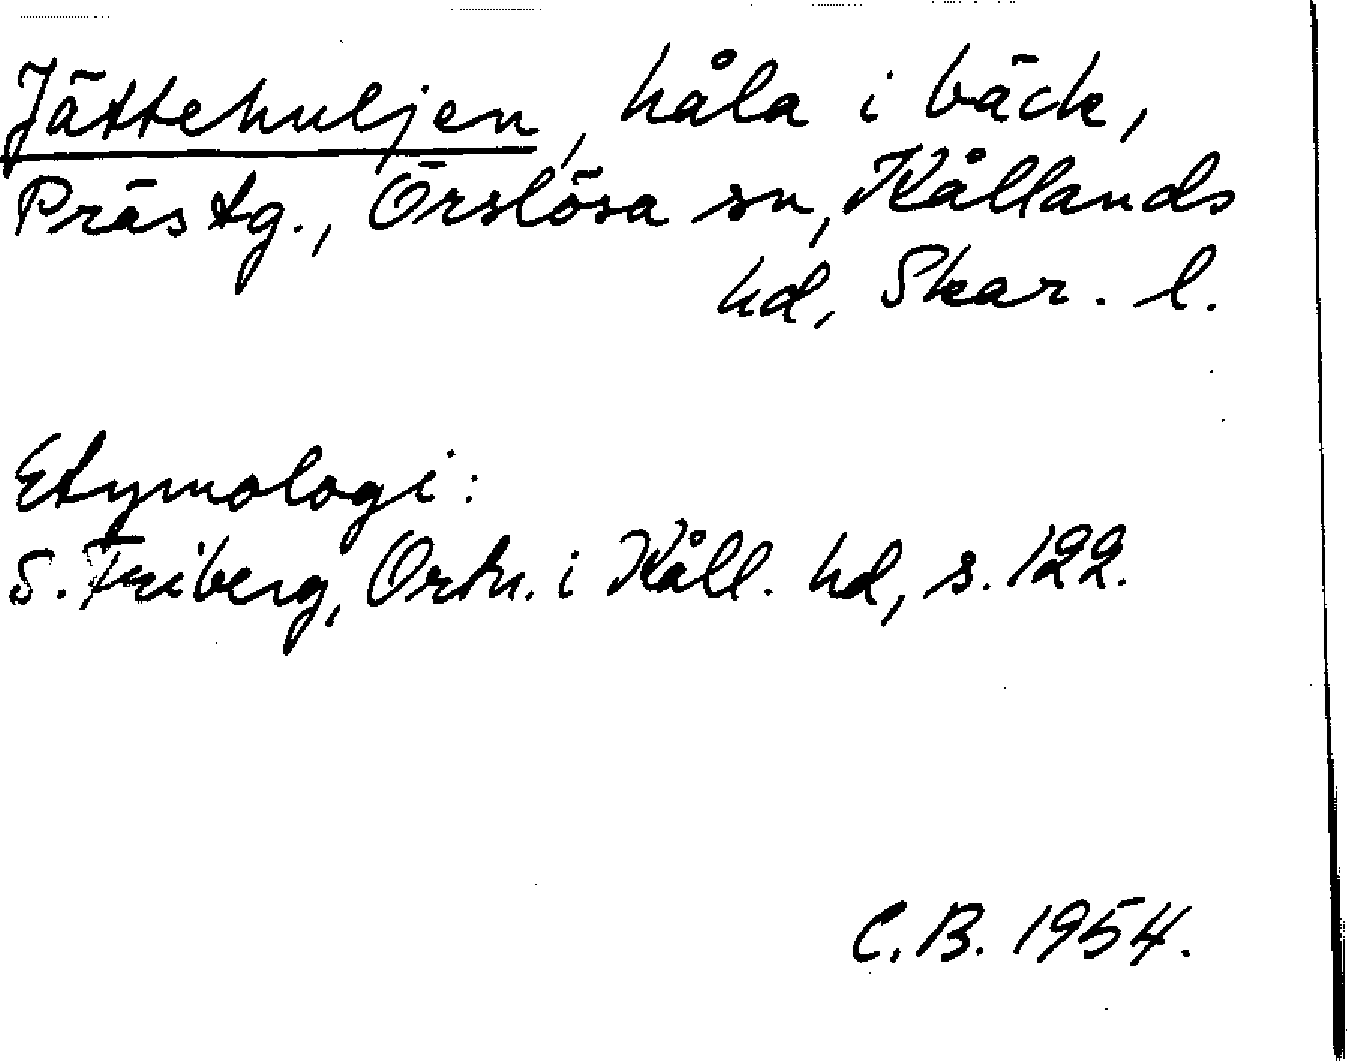 Jättehuljen, håla i bäck,
Prästg., Örslösa sn, Kållands
hd, Skar. l.
Etymologi:
S. Friberg, Ortn. i Kåll. hd, s. 122.
C. B. 1954.